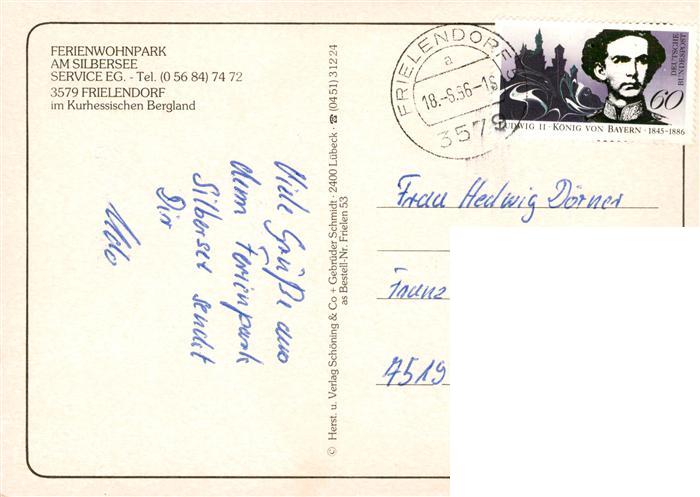 FERIENWOHNPARK
AM SILBERSEE
SERVICE EG. - Tel. (0 56 84) 74 72
3579 FRIELENDORF
im Kurhessischen Bergland
Viele Grüße aus
dem Ferienpark
Silbersee sendet
Dir
Udo
© Herst. u. Verlag Schöning & Co + Gebrüder Schmidt · 2400 Lübeck · ☎ (04 51) 3 12 24
as Bestell-Nr. Frielen 53
FRIELENDORF
a
18.-8.86-16
3579
DEUTSCHE
BUNDESPOST
60
LUDWIG II · KÖNIG VON BAYERN · 1845-1886
Frau Hedwig Dörner
Franz
7519